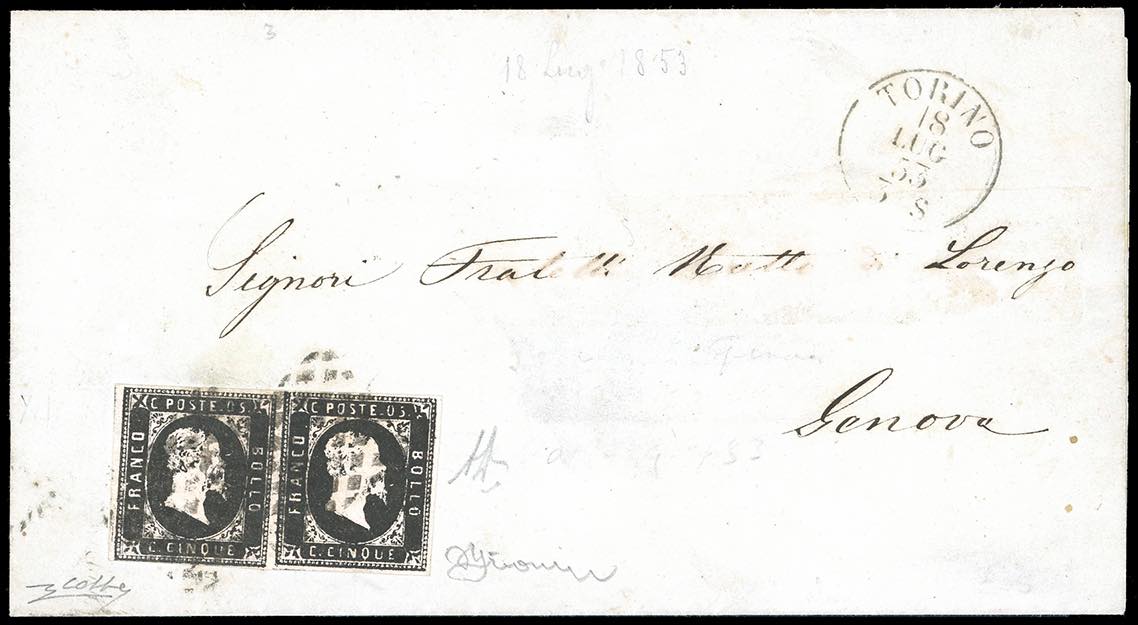 3
18 Lug 1853
TORINO
18
LUG
53
S
Signori Fratelli di Lorenzo
Genova
C. POSTE. 05.
FRANCO
BOLLO
C. CINQUE
C. POSTE. 05.
FRANCO
BOLLO
C. CINQUE